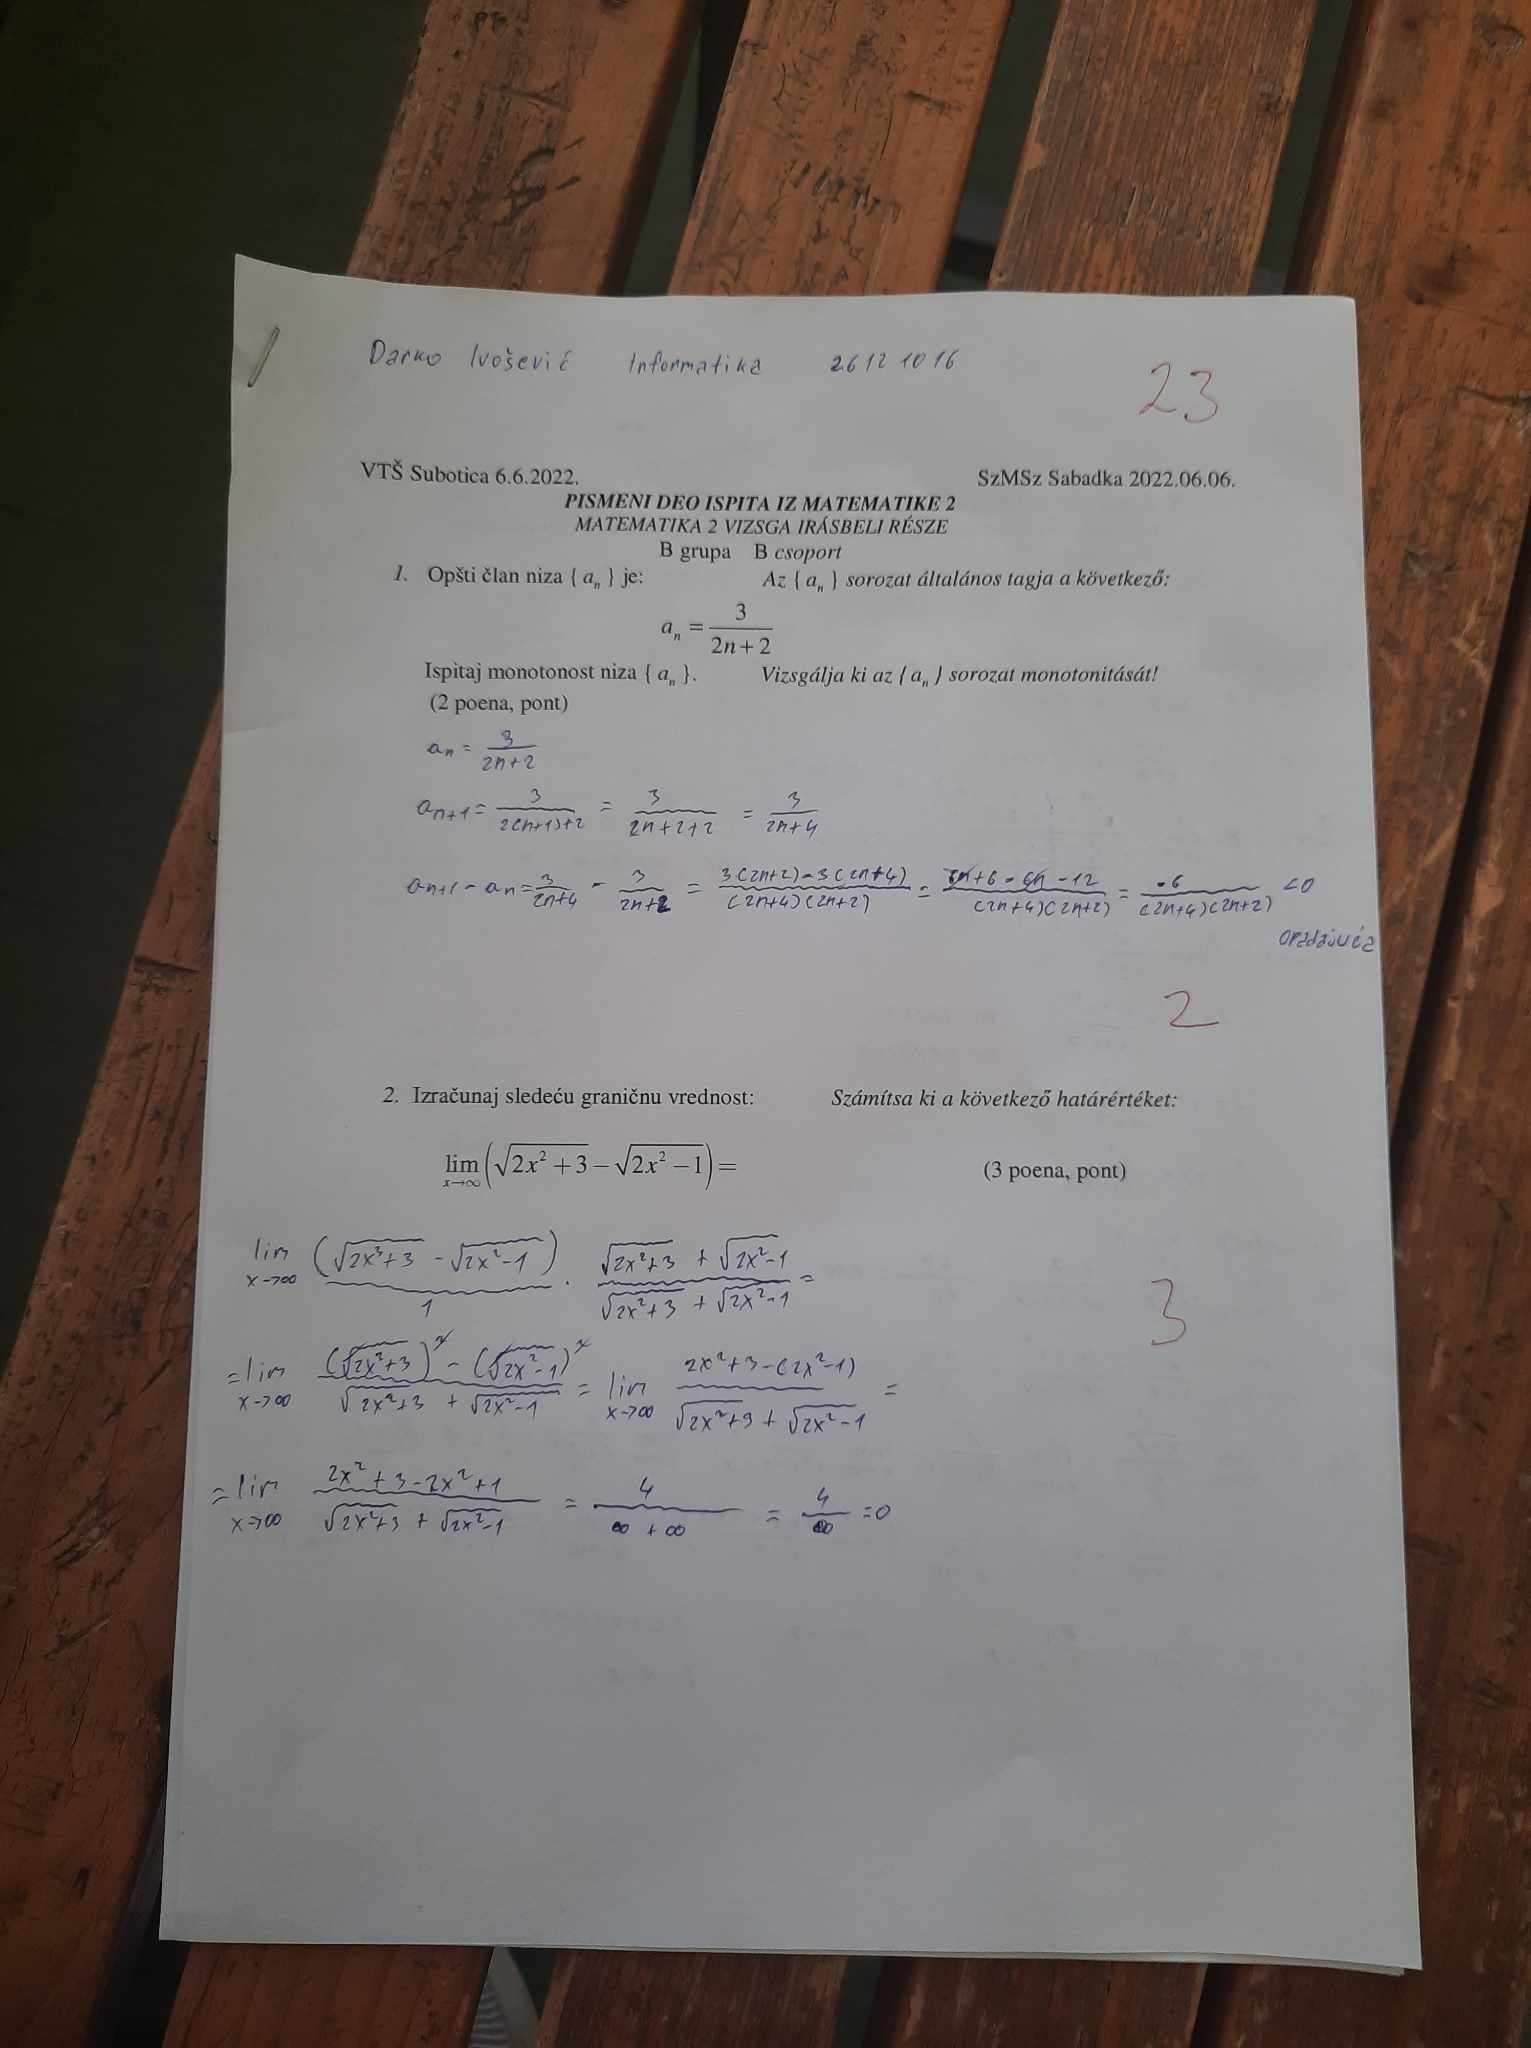 Darko Ivošević Informatika 26121016
23
VTŠ Subotica 6.6.2022. SzMSz Sabadka 2022.06.06.
PISMENI DEO ISPITA IZ MATEMATIKE 2
MATEMATIKA 2 VIZSGA IRÁSBELI RÉSZE
B grupa B csoport
1. Opšti član niza { a_n } je: Az { a_n } sorozat általános tagja a következő:
a_n = 3/(2n+2)
Ispitaj monotonost niza { a_n }. Vizsgálja ki az { a_n } sorozat monotonitását!
(2 poena, pont)
an = 3/(2n+2)
an+1 = 3/(2(n+1)+2) = 3/(2n+2+2) = 3/(2n+4)
an+1 - an = 3/(2n+4) - 3/(2n+2) = (3(2n+2)-3(2n+4))/((2n+4)(2n+2)) = (6n+6-6n-12)/((2n+4)(2n+2)) = -6/((2n+4)(2n+2)) <0
opadajuća
2
2. Izračunaj sledeću graničnu vrednost: Számítsa ki a következő határértéket:
lim x→∞ (√(2x²+3) − √(2x²−1)) = (3 poena, pont)
lim x→∞ (√(2x³+3) - √(2x²-1))/1 · (√(2x²+3) + √(2x²-1))/(√(2x²+3) + √(2x²-1)) =
3
= lim x→∞ ((√(2x²+3))² - (√(2x²-1))²)/(√(2x²+3) + √(2x²-1)) = lim x→∞ (2x²+3-(2x²-1))/(√(2x²+3) + √(2x²-1)) =
= lim x→∞ (2x²+3-2x²+1)/(√(2x²+3) + √(2x²-1)) = 4/(∞+∞) = 4/∞ = 0